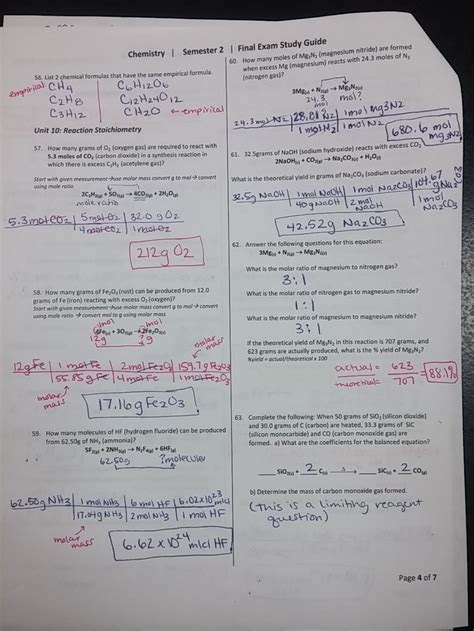 Chemistry | Semester 2 | Final Exam Study Guide
56. List 2 chemical formulas that have the same empirical formula.
empirical CH4 C6H12O6
C2H8 C12H24O12
C3H12 CH2O ← empirical
Unit 10: Reaction Stoichiometry
57. How many grams of O2 (oxygen gas) are required to react with
5.3 moles of CO2 (carbon dioxide) in a synthesis reaction in
which there is excess C2H2 (acetylene gas)?
Start with given measurement →use molar mass convert g to mol → convert
using mole ratio
2C2H2(g) + 5O2(g) → 4CO2(g) + 2H2O(g)
mole ratio
5.3 mol CO2 | 5 mol O2 | 32.0 g O2
4 mol CO2 | 1 mol O2
212g O2
58. How many grams of Fe2O3 (rust) can be produced from 12.0
grams of Fe (iron) reacting with excess O2 (oxygen)?
Start with given measurement →use molar mass convert g to mol → convert
using mole ratio → convert mol to g using molar mass
mol mol
4Fe(s) + 3O2(g) → 2Fe2O3(s)
12g ?g
12g Fe | 1 mol Fe | 2 mol Fe2O3 | 159.7g Fe2O3
55.85g Fe | 4 mol Fe | 1 mol Fe2O3
molar mass
17.16g Fe2O3
59. How many molecules of HF (hydrogen fluoride) can be produced
from 62.50g of NH3 (ammonia)?
5F2(g) + 2NH3(g) → N2F4(g) + 6HF(g)
62.50g ?molecules
62.50g NH3 | 1 mol NH3 | 6 mol HF | 6.02x10^23 mlcl
17.04g NH3 | 2 mol NH3 | 1 mol HF
molar mass
6.62 x 10^24 mlcl HF
60. How many moles of Mg3N2 (magnesium nitride) are formed
when excess Mg (magnesium) reacts with 24.3 moles of N2
(nitrogen gas)?
3Mg(s) + N2(g) → Mg3N2(s)
24.3 mol?
24.3 mol N2 | 28.01 g N2 | 1 mol Mg3N2
1 mol N2 | 1 mol N2
680.6 mol Mg3N2
61. 32.5grams of NaOH (sodium hydroxide) reacts with excess CO2
2NaOH(s) + CO2(g) → Na2CO3(s) + H2O(l)
What is the theoretical yield in grams of Na2CO3 (sodium carbonate)?
32.5g NaOH | 1 mol NaOH | 1 mol Na2CO3 | 104.67 g
40g NaOH | 2 mol NaOH | 1 mol Na2CO3
42.52g Na2CO3
62. Answer the following questions for this equation:
3Mg(s) + N2(g) → Mg3N2(s)
What is the molar ratio of magnesium to nitrogen gas?
3:1
What is the molar ratio of nitrogen gas to magnesium nitride?
1:1
What is the molar ratio of magnesium to magnesium nitride?
3:1
If the theoretical yield of Mg3N2 in this reaction is 707 grams, and
623 grams are actually produced, what is the % yield of Mg3N2?
%yield = actual/theoretical x 100
actual = 623
theoretical = 707 = 88.1%
63. Complete the following: When 50 grams of SiO2 (silicon dioxide)
and 30.0 grams of C (carbon) are heated, 33.3 grams of SiC
(silicon monocarbide) and CO (carbon monoxide gas) are
formed. a) What are the coefficients for the balanced equation?
___SiO2(s) + 2 C(s) → ___SiC(s) + 2 CO(g)
b) Determine the mass of carbon monoxide gas formed.
(this is a limiting reagent
question)
Page 4 of 7